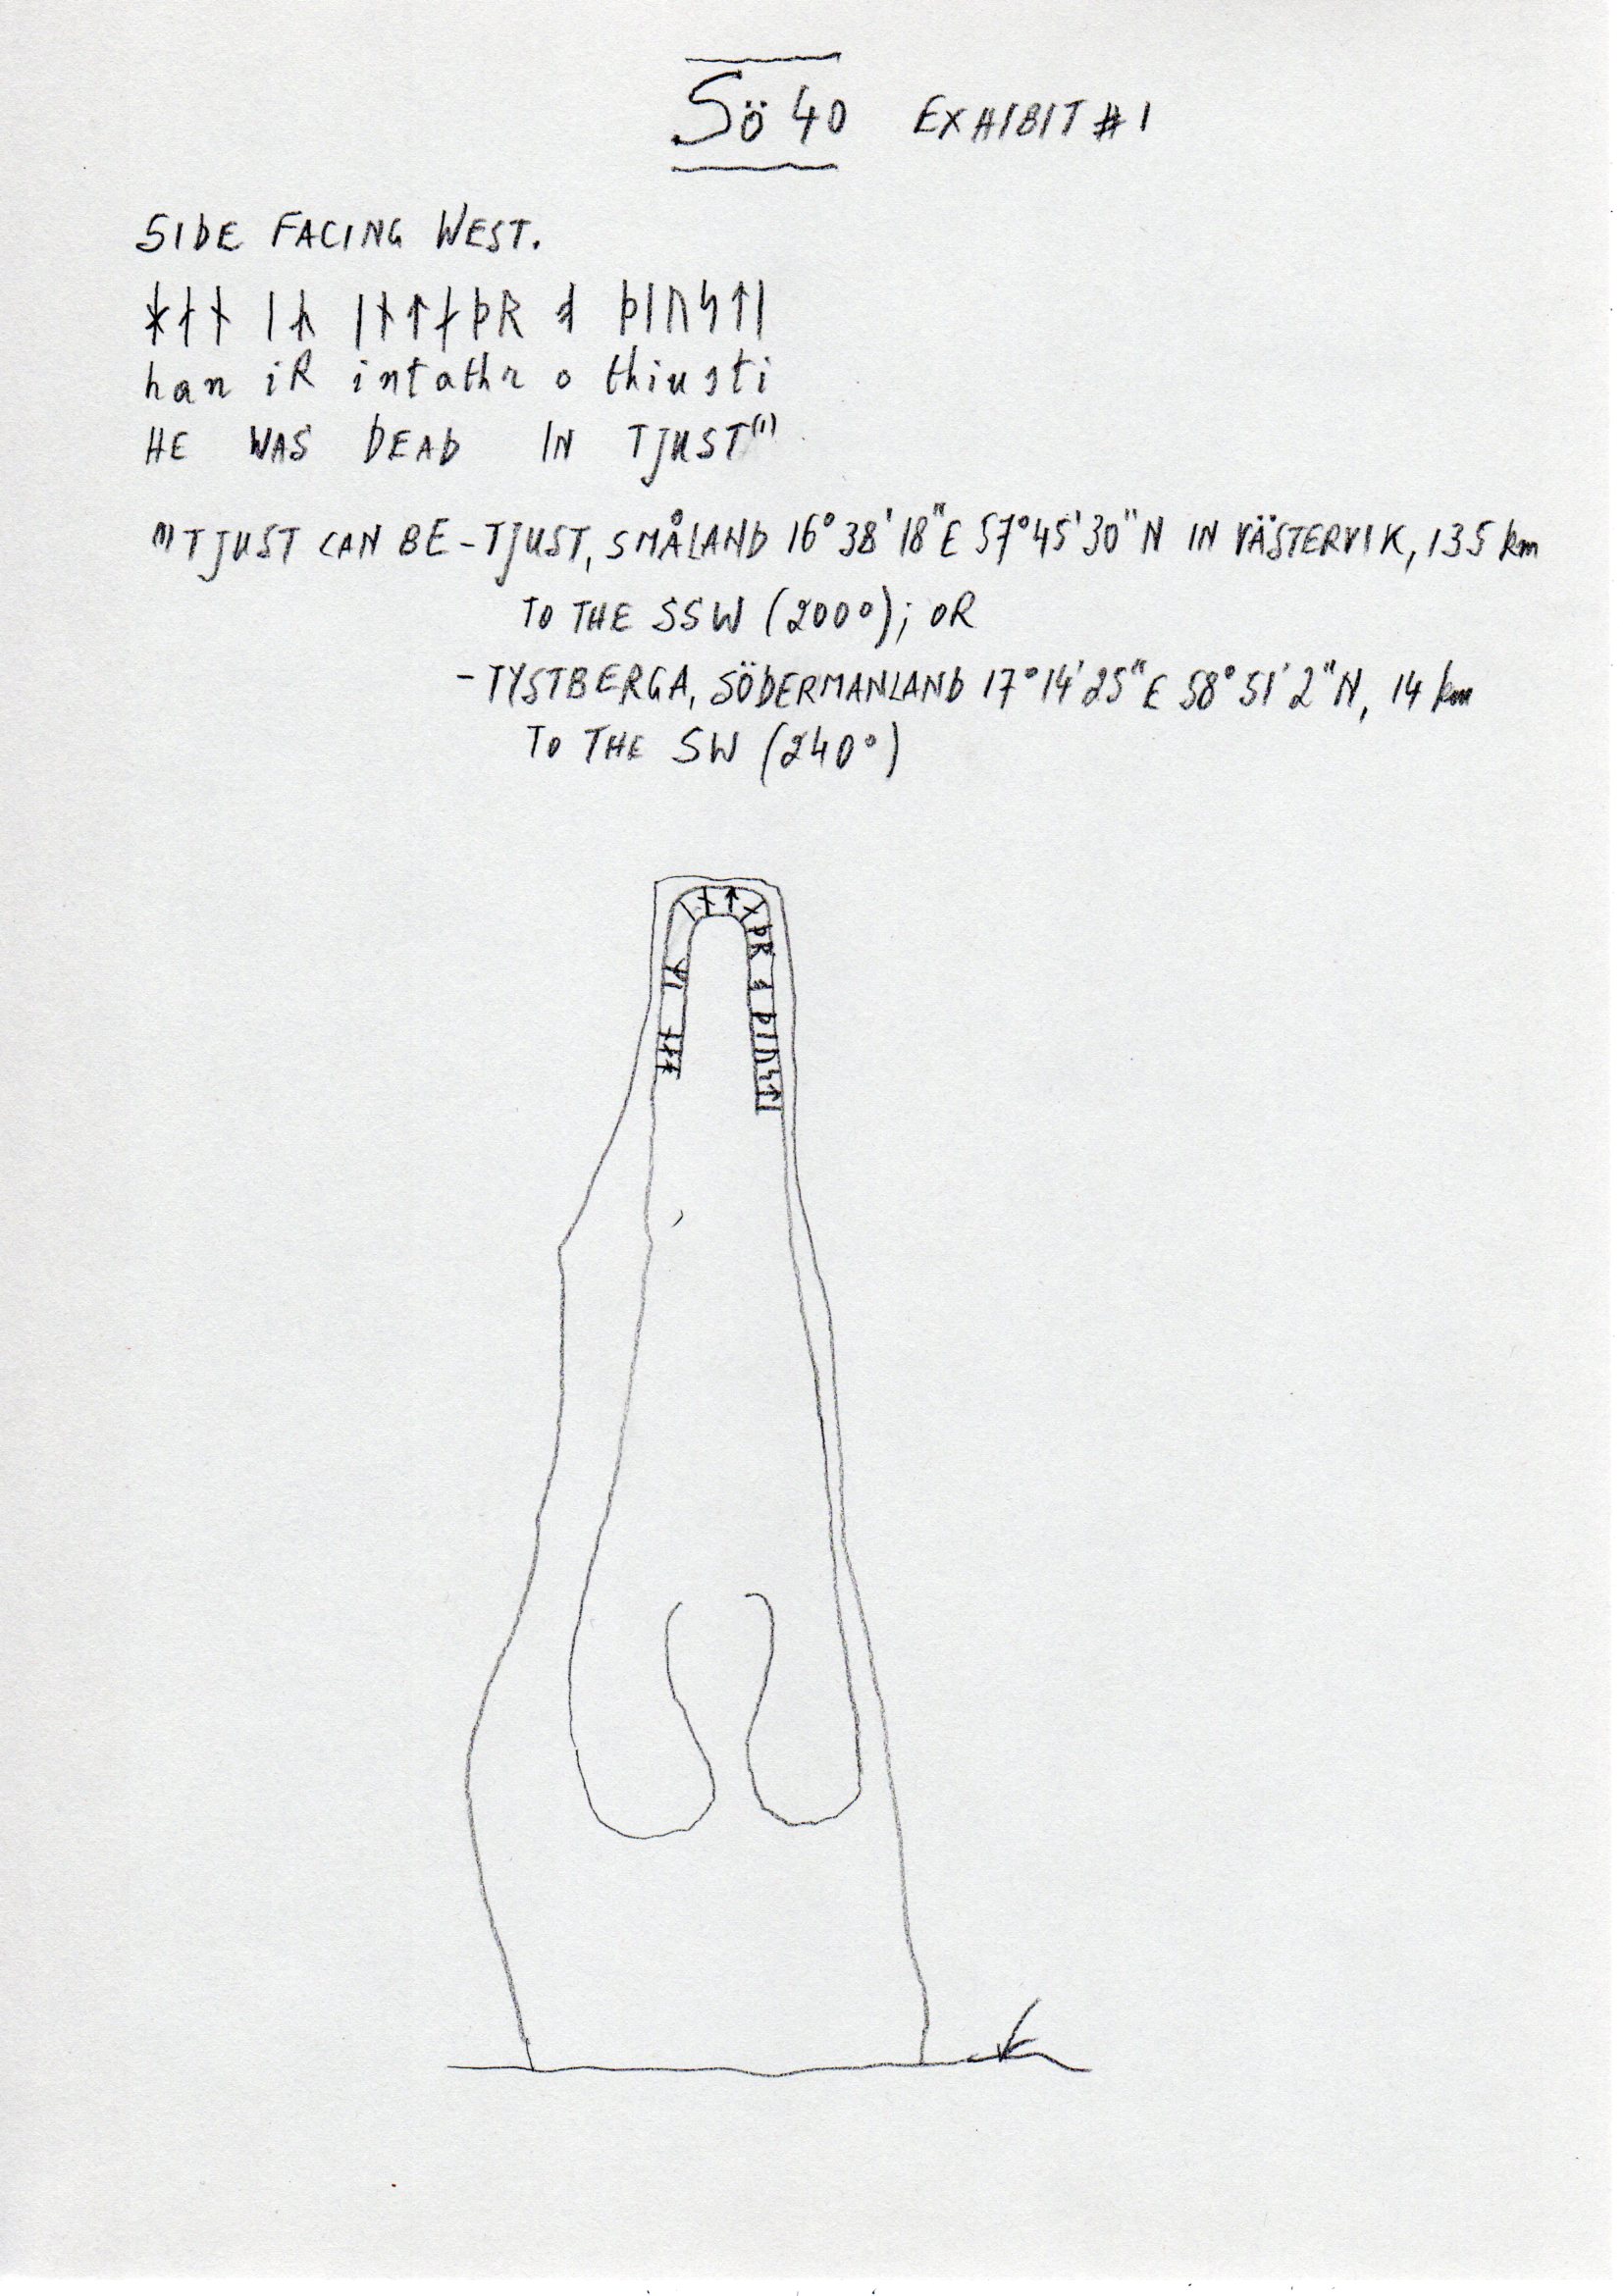 Sö 40 EXHIBIT # 1
SIDE FACING WEST.
ᚼᛅᚾ ᛁᛦ ᛁᚾᛏᛅᚦᚱ ᚬ ᚦᛁᚢᛋᛏᛁ
han iR intathr o thiusti
HE WAS DEAD IN TJUST⁽¹⁾
⁽¹⁾ TJUST CAN BE - TJUST, SMÅLAND 16°38'18"E 57°45'30"N IN VÄSTERVIK, 135 km
TO THE SSW (200°); OR
- TYSTBERGA, SÖDERMANLAND 17°14'25"E 58°51'2"N, 14 km
TO THE SW (240°)
ᚼᛅᚾ ᛁᛦ ᛁᚾᛏᛅᚦᚱ ᚬ ᚦᛁᚢᛋᛏᛁ